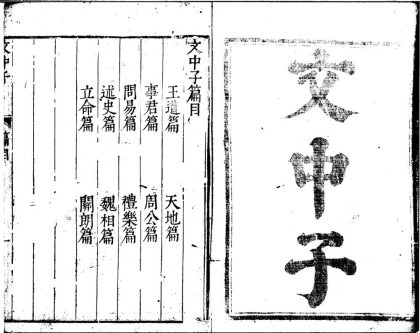 文中子
文中子篇目
王道篇 天地篇
事君篇 周公篇
問易篇 禮樂篇
述史篇 魏相篇
立命篇 關朗篇
文中子 篇目